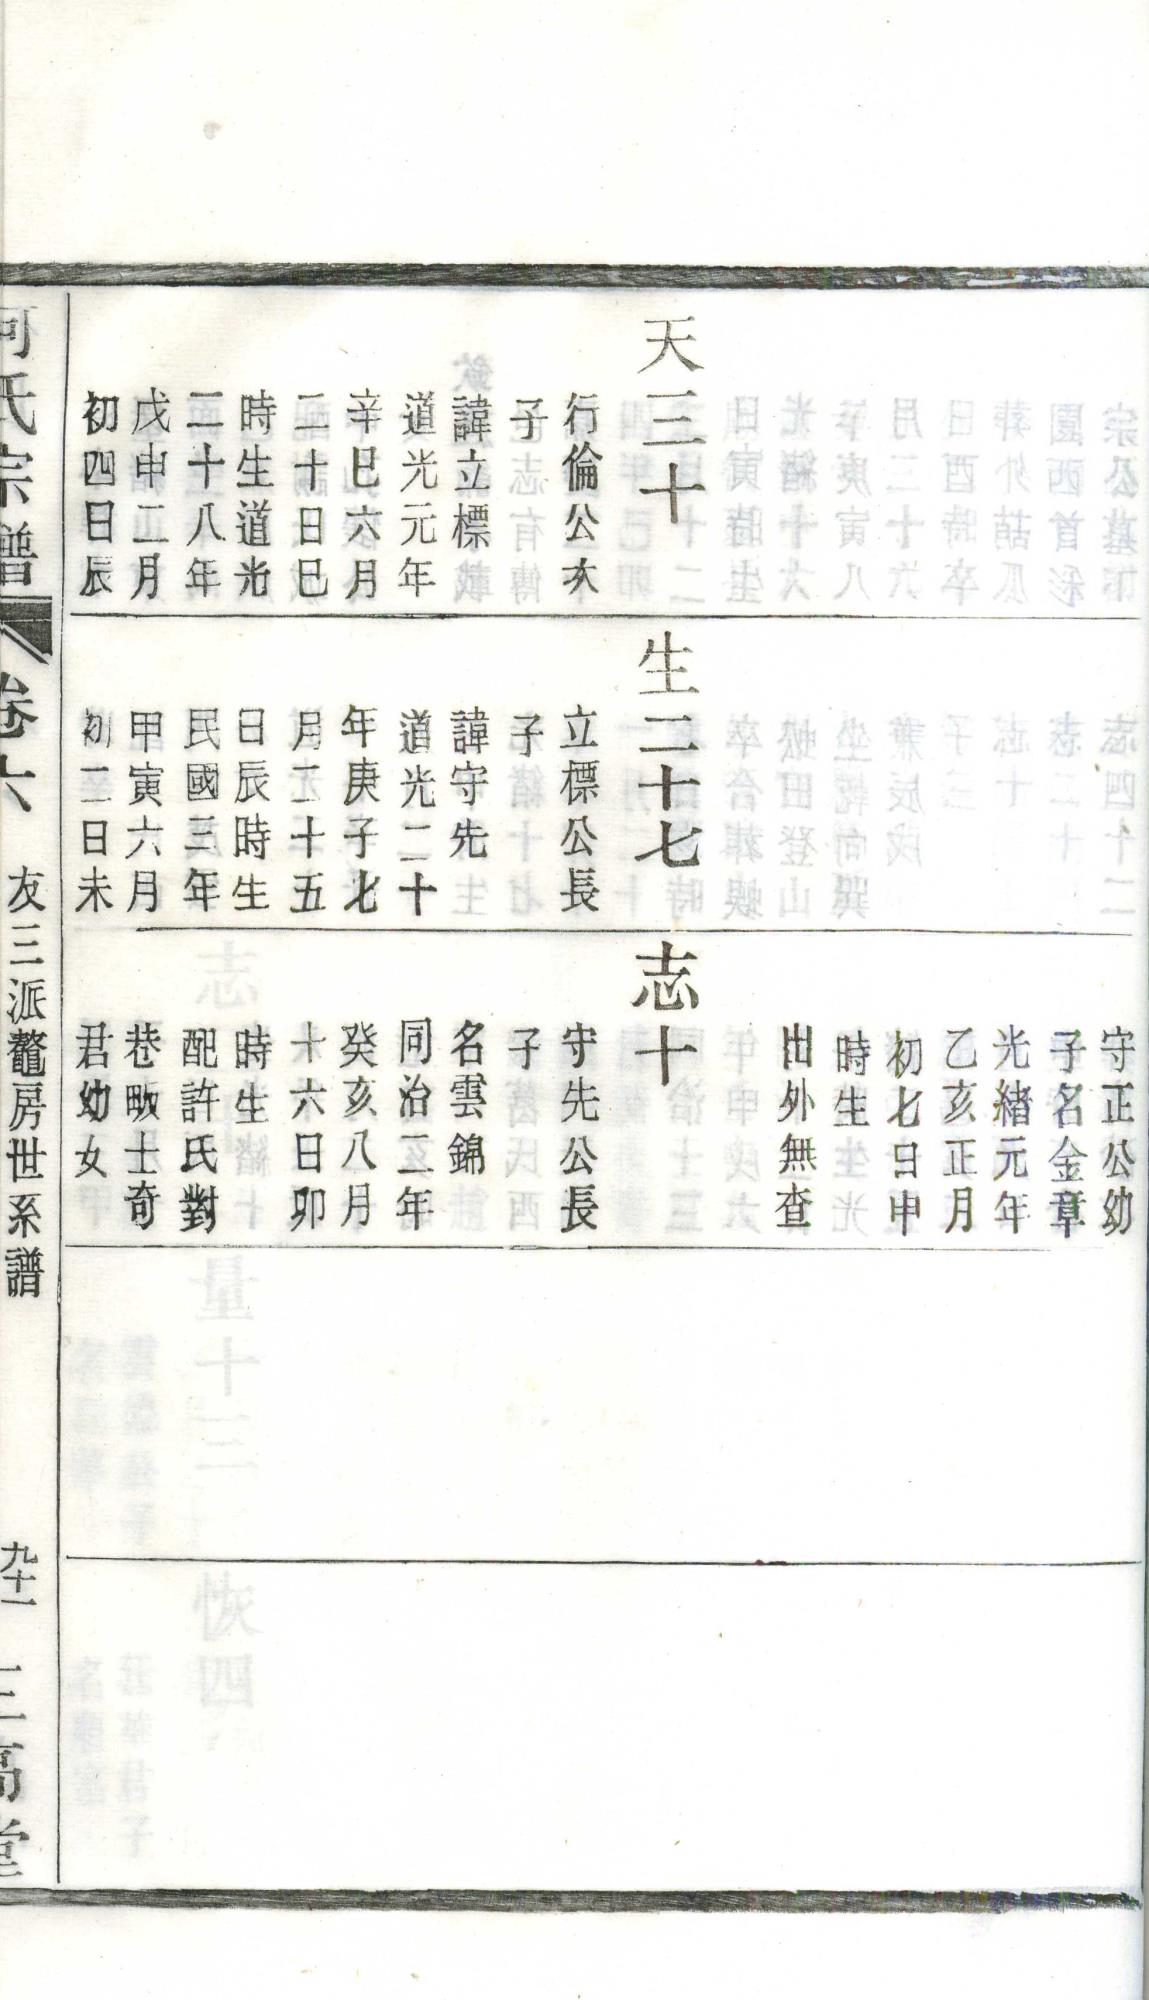 天三十
行倫公次
子
諱立標
道光元年
辛巳六月
二十日巳
時生道光
二十八年
戊申二月
初四日辰
生二十七
立標公長
子
諱守先
道光二十
年庚子七
月二十五
日辰時生
民國三年
甲寅六月
初二日未
守正公幼
子名金章
光緒元年
乙亥正月
初七日申
時生
出外無查
志十
守先公長
子
名雲錦
同治二年
癸亥八月
十六日卯
時生
配許氏對
巷畈士奇
君幼女
何氏宗譜
卷六
友三派鼇房世系譜
九十一
三高堂